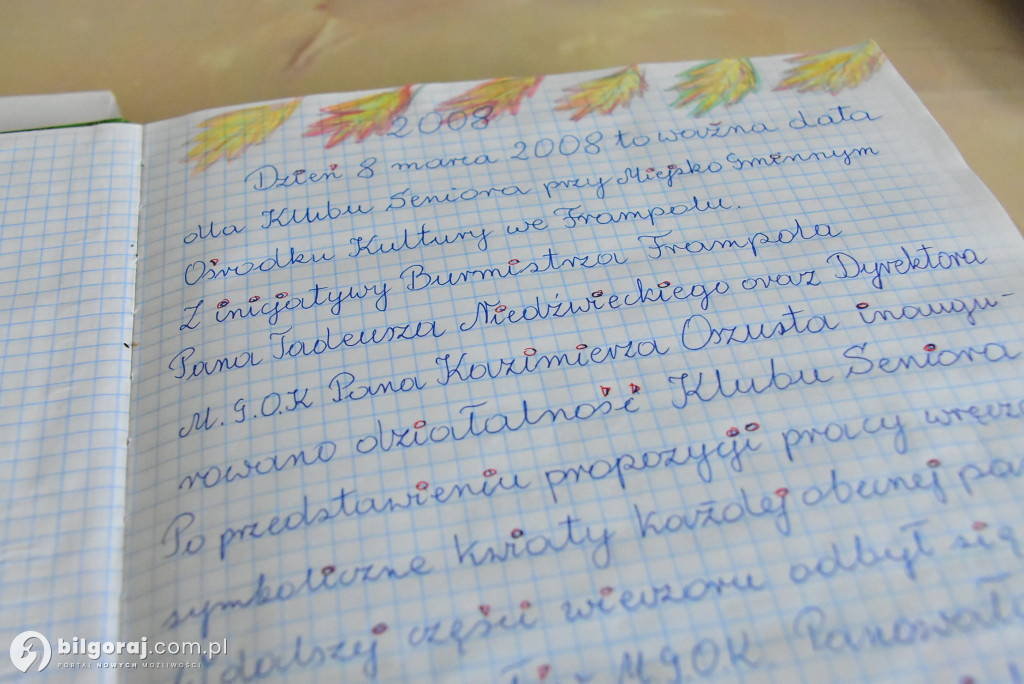 2008
Dzień 8 marca 2008 to ważna data
dla Klubu Seniora przy Miejsko Gminnym
Ośrodku Kultury we Frampolu.
Z inicjatywy Burmistrza Frampola
Pana Tadeusza Niedźwieckiego oraz Dyrektora
M.G.O.K Pana Kazimierza Oszusta inaugu-
rowano działalność Klubu Seniora
Po przedstawieniu propozycji pracy
symboliczne kwiaty każdej obecnej
dalszej części wieczoru odbył się
M.G.O.K. Panowała
bilgoraj.com.pl
PORTAL NOWYCH MOŻLIWOŚCI